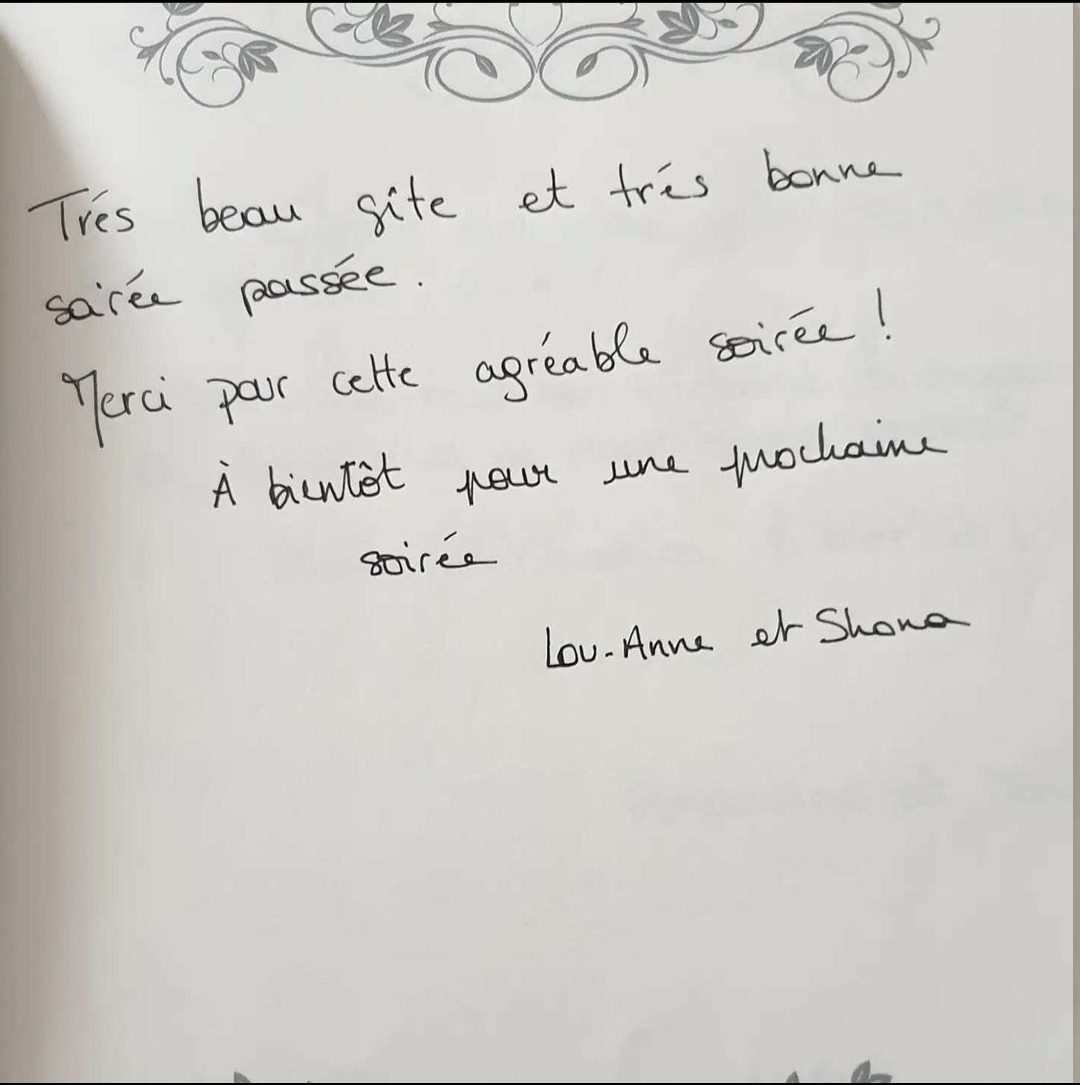 Trés beau gîte et trés bonne
soirée passée.
Merci pour cette agréable soirée !
À bientôt pour une prochaine
soirée
Lou-Anne et Shona